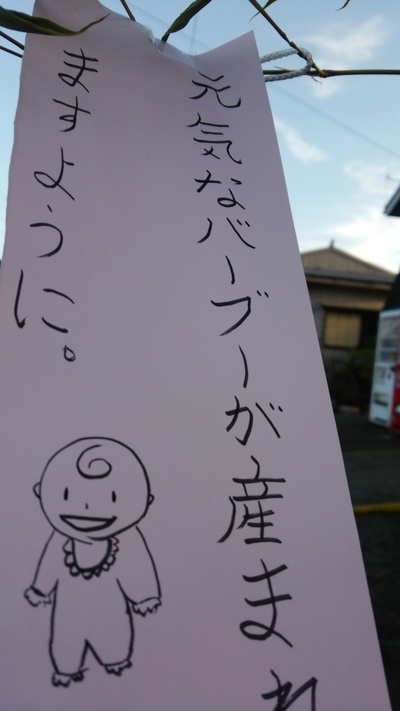 元気なバーブーが産まれ
ますように。